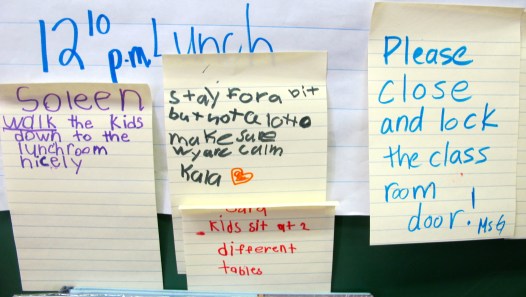 12 10 p.m. Lunch
Soleen
walk the kids
down to the
lunchroom
nicely
stay For a bit
but not a lotto
make sure
wy are calm
Kala
Sara
Kids sit at 2
different
tables
Please
close
and lock
the class
room
door! Ms G